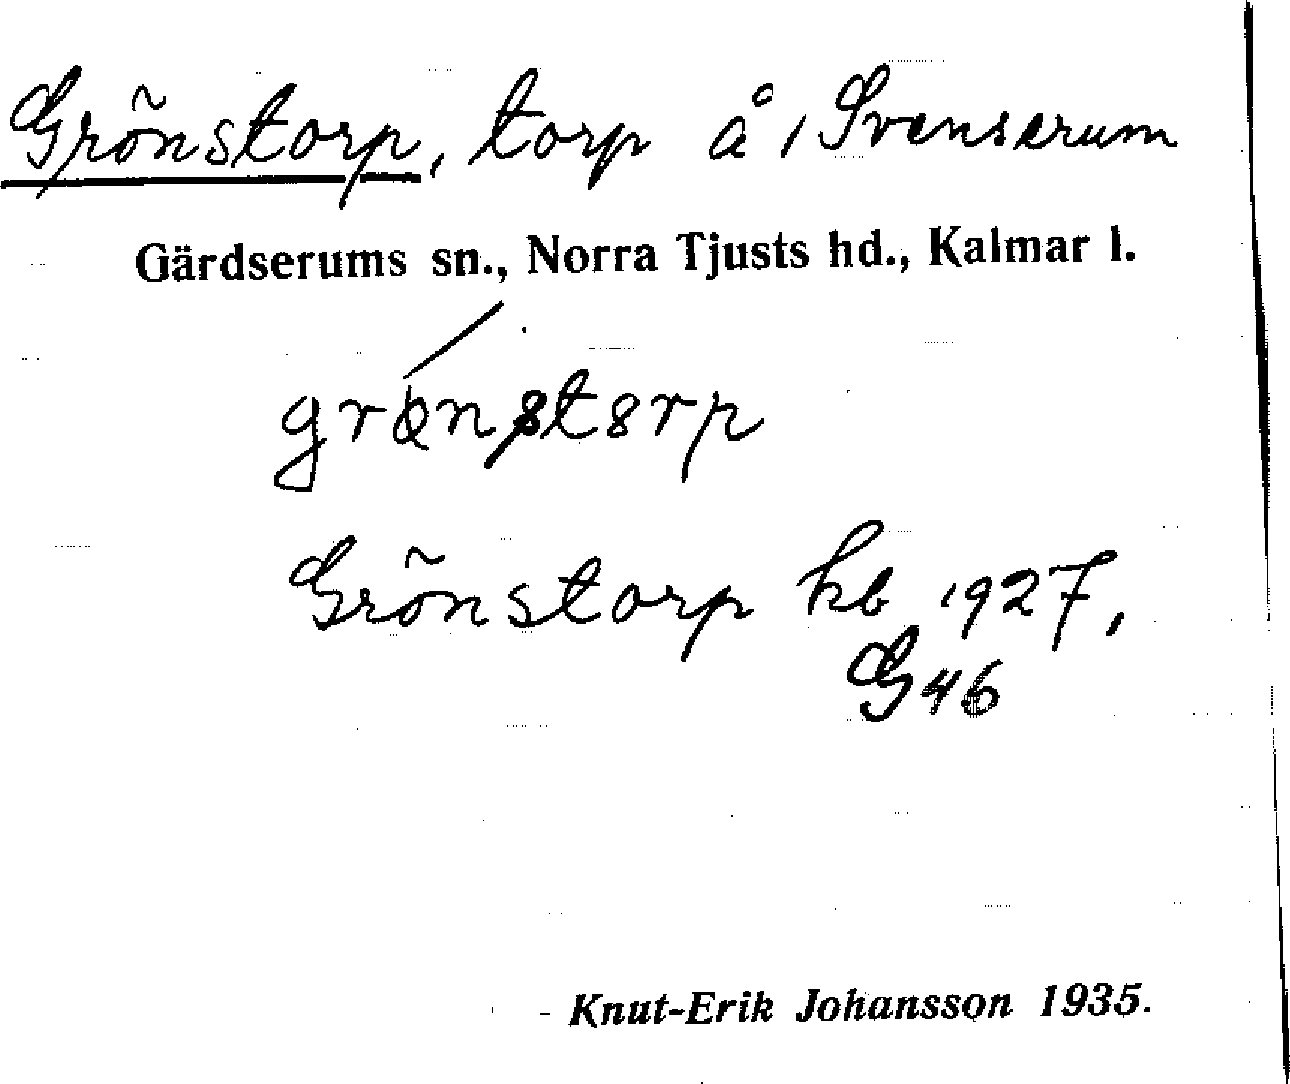 Grönstorp, torp å 1 Svenserum
Gärdserums sn., Norra Tjusts hd., Kalmar l.
Grönstorp hb 1927,
G46
Knut-Erik Johansson 1935.